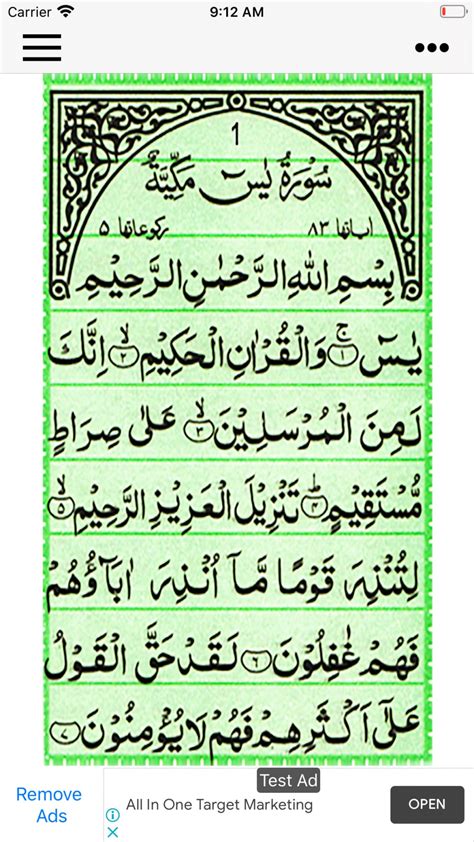 Carrier 9:12 AM
1
سُوْرَةُ يٰسٓ مَكِّيَّةٌ
اٰیاتها ٨٣ رکوعاتها ۵
بِسْمِ اللهِ الرَّحْمٰنِ الرَّحِيْمِ
يٰسٓ ۚ﴿١﴾ وَالْقُرْاٰنِ الْحَكِيْمِ ۙ﴿٢﴾ اِنَّكَ
لَمِنَ الْمُرْسَلِيْنَ ۙ﴿٣﴾ عَلٰى صِرَاطٍ
مُّسْتَقِيْمٍ ؕ﴿۴﴾ تَنْزِيْلَ الْعَزِيْزِ الرَّحِيْمِ ۙ﴿۵﴾
لِتُنْذِرَ قَوْمًا مَّاۤ اُنْذِرَ اٰبَآؤُهُمْ
فَهُمْ غٰفِلُوْنَ ﴿٦﴾ لَقَدْ حَقَّ الْقَوْلُ
عَلٰۤى اَكْثَرِهِمْ فَهُمْ لَا يُؤْمِنُوْنَ ﴿٧﴾
Test Ad
Remove Ads
All In One Target Marketing
OPEN